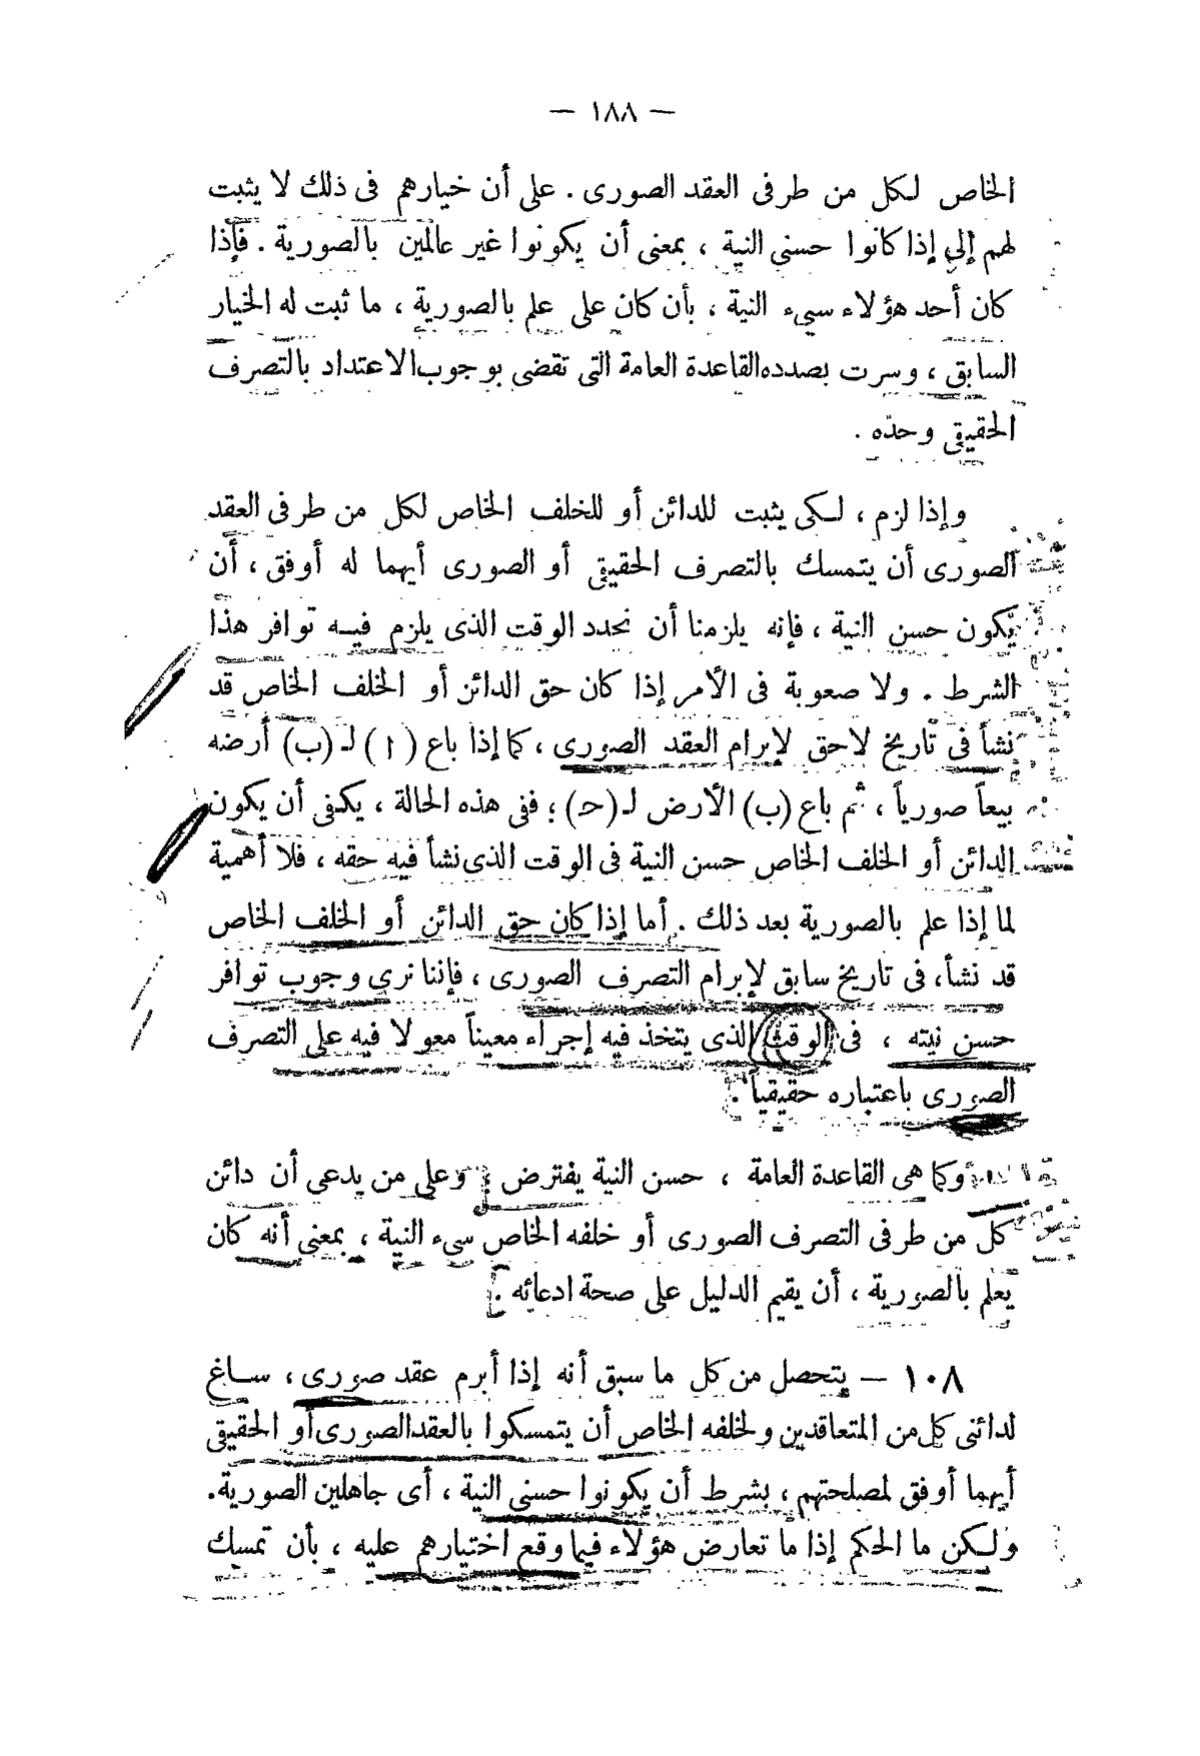 — ١٨٨ —
الخاص لكل من طرفى العقد الصورى . على أن خيارهم فى ذلك لا يثبت
لهم إلي إذا كانوا حسنى النية ، بمعنى أن يكونوا غير عالمين بالصورية . فإذا
كان أحد هؤلاء سيىء النية ، بأن كان على علم بالصورية ، ما ثبت له الخيار
السابق ، وسرت بصدده القاعدة العامة التى تقضى بوجوب الاعتداد بالتصرف
الحقيقى وحده .
وإذا لزم ، لكى يثبت للدائن أو للخلف الخاص لكل من طرفى العقد
الصورى أن يتمسك بالتصرف الحقيقى أو الصورى أيهما له أوفق ، أن
يكون حسن النية ، فإنه يلزمنا أن نحدد الوقت الذى يلزم فيه توافر هذا
الشرط . ولا صعوبة فى الأمر إذا كان حق الدائن أو الخلف الخاص قد
نشأ فى تاريخ لاحق لإبرام العقد الصورى ، كما إذا باع (ا) لـ (ب) أرضه
بيعاً صورياً ، ثم باع (ب) الأرض لـ (حـ) ؛ ففى هذه الحالة ، يكفى أن يكون
الدائن أو الخلف الخاص حسن النية فى الوقت الذى نشأ فيه حقه ، فلا أهمية
لما إذا علم بالصورية بعد ذلك . أما إذا كان حق الدائن أو الخلف الخاص
قد نشأ ، فى تاريخ سابق لإبرام التصرف الصورى ، فإننا نرى وجوب توافر
حسن نيته ، فى الوقت الذى يتخذ فيه إجراء معيناً معولا فيه على التصرف
الصورى باعتباره حقيقياً .
وكما هى القاعدة العامة ، حسن النية يفترض ؛ وعلى من يدعى أن دائن
كل من طرفى التصرف الصورى أو خلفه الخاص سىء النية ، بمعنى أنه كان
يعلم بالصورية ، أن يقيم الدليل على صحة ادعائه .
١٠٨ — يتحصل من كل ما سبق أنه إذا أبرم عقد صورى ، ساغ
لدائنى كل من المتعاقدين ولخلفه الخاص أن يتمسكوا بالعقد الصورى أو الحقيقى
أيهما أوفق لمصلحتهم ، بشرط أن يكونوا حسنى النية ، أى جاهلين الصورية .
ولكن ما الحكم إذا ما تعارض هؤلاء فيما وقع اختيارهم عليه ، بأن تمسك